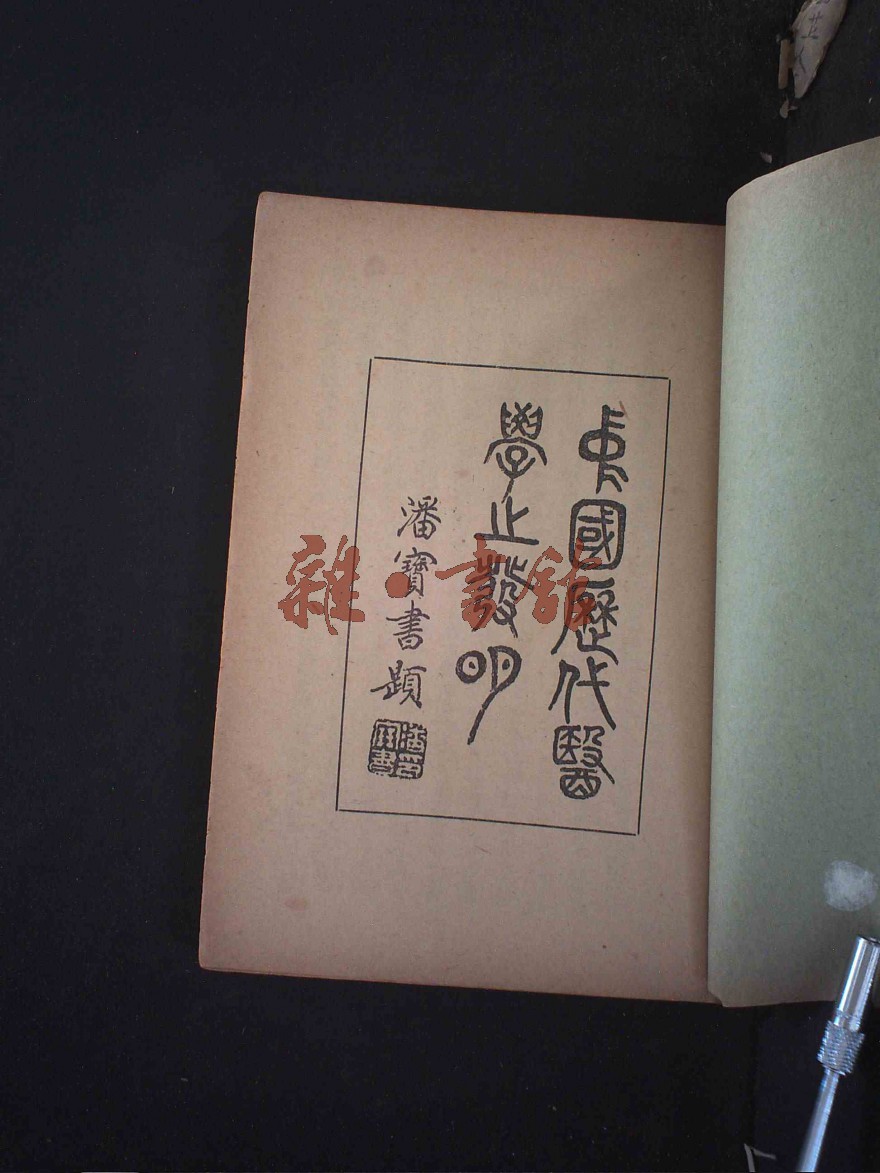 中國歷代醫
學之發明
潘寶書題
雜·書館